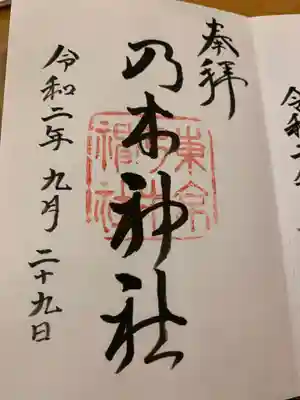 奉拝
乃木神社
東京乃木神社
令和二年 九月 二十九日